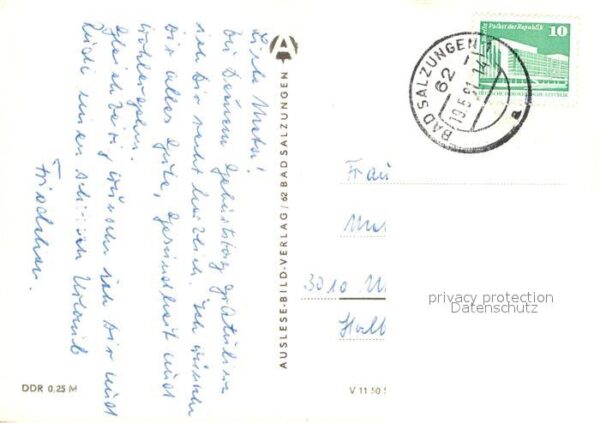 Liebe Meta!
Zu Deinem Geburtstag gratuliere
ich Dir recht herzlich. Ich wünsche
Dir alles Gute, Gesundheit und
Wohlergehen.
Gleichzeitig wünschen ich Dir und
einen schönen Urlaub
Friedchen.
AUSLESE-BILD-VERLAG / 62 BAD SALZUNGEN
DDR 0,25 M
V 11 50
Palast der Republik
10
BAD SALZUNGEN 1
62
19.5.81.14
a
Frau
3010
privacy protection
Datenschutz